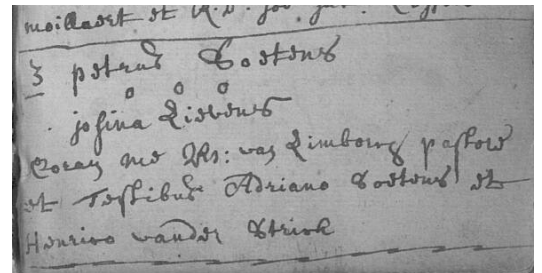 moillaert et R.D. Joe
3 petrus Soetens
o o o
josina Lievens
Coram me Rs: van Limborg pastore
et Testibus Adriano Soetens et
Henrico vander Strick